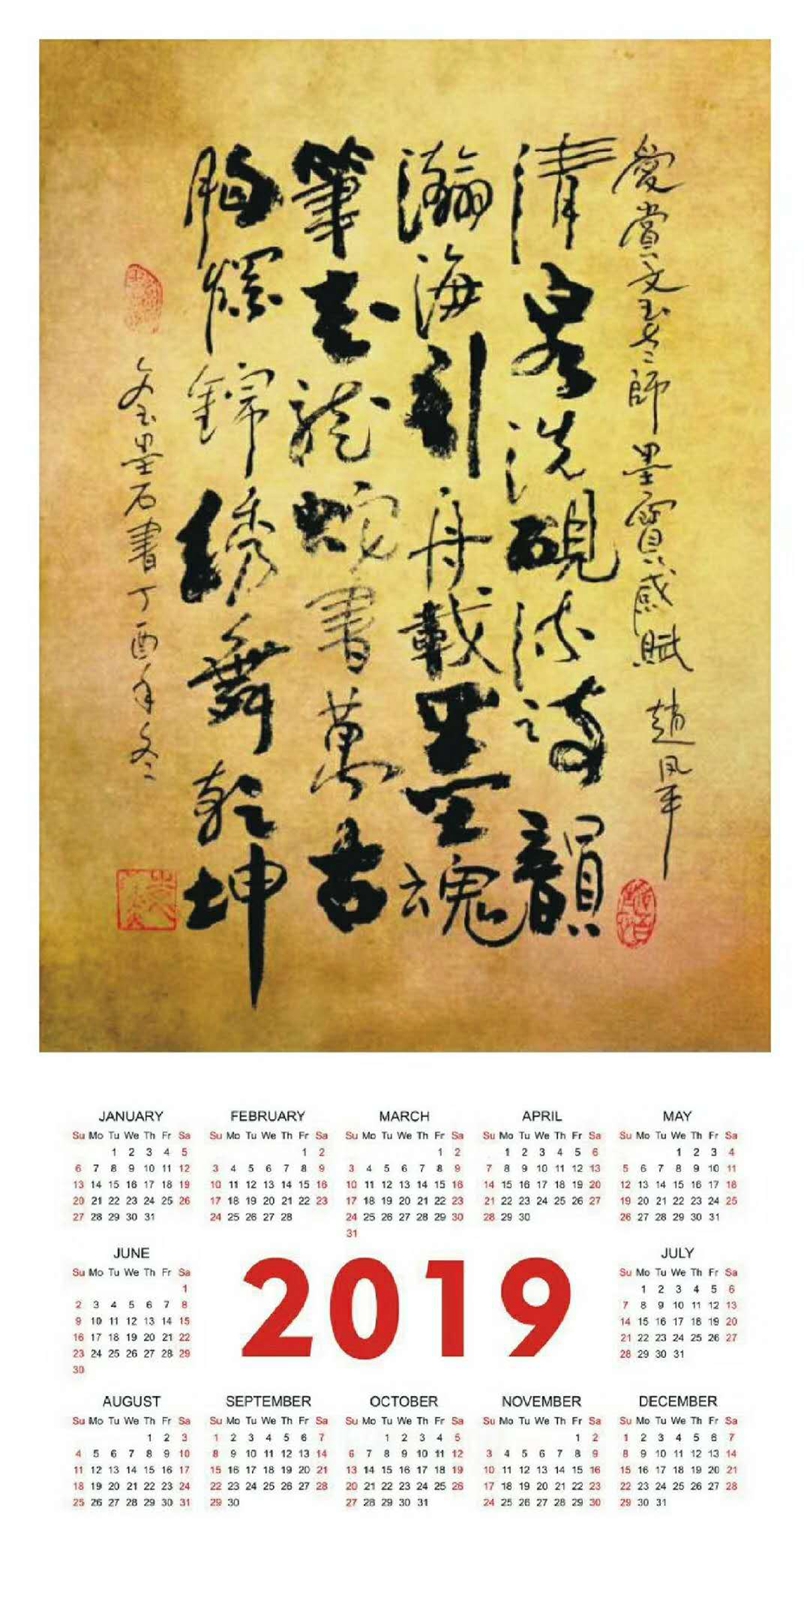 愛賞文玉老師墨寶感賦 趙凤平
清泉洗硯流詩韻
瀚海引舟載墨魂
筆走龍蛇書萬古
胸懷錦綉舞乾坤
墨石書丁酉年冬
JANUARY
Su Mo Tu We Th Fr Sa
1 2 3 4 5
6 7 8 9 10 11 12
13 14 15 16 17 18 19
20 21 22 23 24 25 26
27 28 29 30 31
FEBRUARY
Su Mo Tu We Th Fr Sa
1 2
3 4 5 6 7 8 9
10 11 12 13 14 15 16
17 18 19 20 21 22 23
24 25 26 27 28
MARCH
Su Mo Tu We Th Fr Sa
1 2
3 4 5 6 7 8 9
10 11 12 13 14 15 16
17 18 19 20 21 22 23
24 25 26 27 28 29 30
31
APRIL
Su Mo Tu We Th Fr Sa
1 2 3 4 5 6
7 8 9 10 11 12 13
14 15 16 17 18 19 20
21 22 23 24 25 26 27
28 29 30
MAY
Su Mo Tu We Th Fr Sa
1 2 3 4
5 6 7 8 9 10 11
12 13 14 15 16 17 18
19 20 21 22 23 24 25
26 27 28 29 30 31
JUNE
Su Mo Tu We Th Fr Sa
1
2 3 4 5 6 7 8
9 10 11 12 13 14 15
16 17 18 19 20 21 22
23 24 25 26 27 28 29
30
2019
JULY
Su Mo Tu We Th Fr Sa
1 2 3 4 5 6
7 8 9 10 11 12 13
14 15 16 17 18 19 20
21 22 23 24 25 26 27
28 29 30 31
AUGUST
Su Mo Tu We Th Fr Sa
1 2 3
4 5 6 7 8 9 10
11 12 13 14 15 16 17
18 19 20 21 22 23 24
25 26 27 28 29 30 31
SEPTEMBER
Su Mo Tu We Th Fr Sa
1 2 3 4 5 6 7
8 9 10 11 12 13 14
15 16 17 18 19 20 21
22 23 24 25 26 27 28
29 30
OCTOBER
Su Mo Tu We Th Fr Sa
1 2 3 4 5
6 7 8 9 10 11 12
13 14 15 16 17 18 19
20 21 22 23 24 25 26
27 28 29 30 31
NOVEMBER
Su Mo Tu We Th Fr Sa
1 2
3 4 5 6 7 8 9
10 11 12 13 14 15 16
17 18 19 20 21 22 23
24 25 26 27 28 29 30
DECEMBER
Su Mo Tu We Th Fr Sa
1 2 3 4 5 6 7
8 9 10 11 12 13 14
15 16 17 18 19 20 21
22 23 24 25 26 27 28
29 30 31